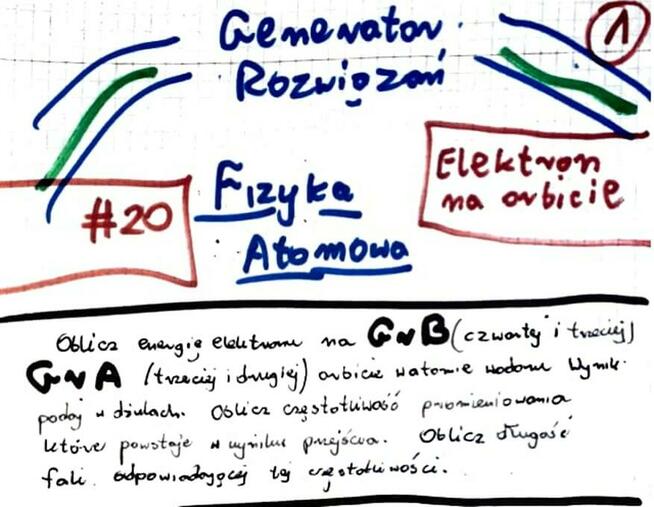 Generator
Rozwiązań
1
#20
Fizyka
Atomowa
Elektron
na orbicie
Oblicz energię elektronu na GrB (czwartej i trzeciej)
GrA (trzeciej i drugiej) orbicie w atomie wodoru Wynik
podaj w dżulach. Oblicz częstotliwość promieniowania
które powstaje w wyniku przejścia. Oblicz długość
fali odpowiadającej tej częstotliwości.